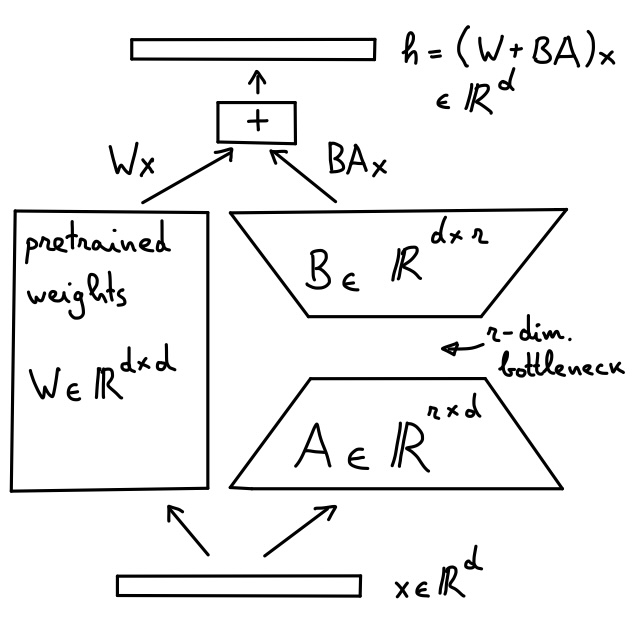 h = (W + BA)x
∈ ℝ^d
+
Wx
BAx
pretrained
weights
W ∈ ℝ^{d×d}
B ∈ ℝ^{d×r}
r-dim.
bottleneck
A ∈ ℝ^{r×d}
x ∈ ℝ^d